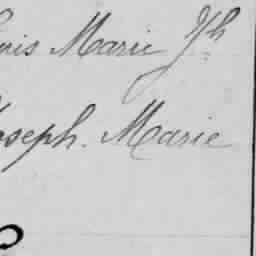 ouis Marie Jh
Joseph. Marie